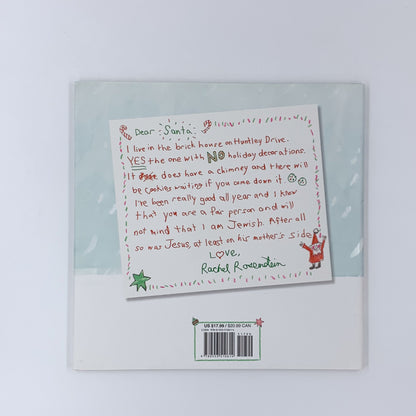 Dear Santa,
I live in the brick house on Huntley Drive.
YES the one with NO holiday decorations.
It does have a chimney and there will
be cookies waiting if you come down it.
I've been really good all year and I know
that you are a fair person and will
not mind that I am Jewish. After all
so was Jesus, at least on his mother's side.
LOVE,
Rachel Rosenstein
US $17.99 / $20.99 CAN